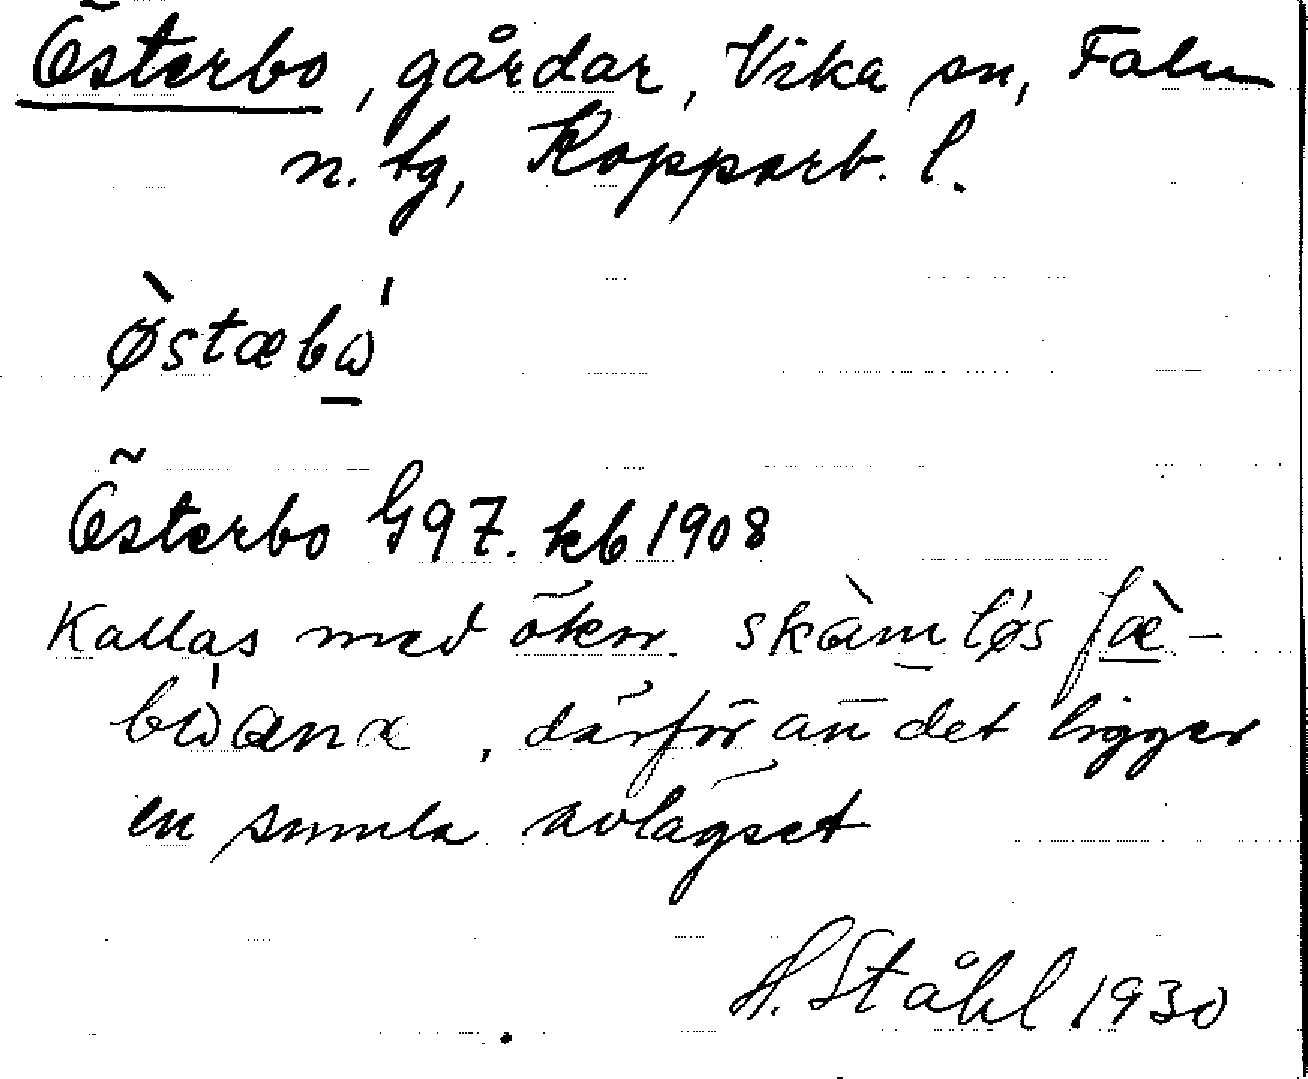 Österbo, gårdar, Vika sn, Falu
n. tg, Kopparb. l.
østæbω
Österbo G97. kb 1908
Kallas med ökn. skàmløs fæ̀-
bωana, därför att det ligger
en smula avlägset
H. Ståhl 1930